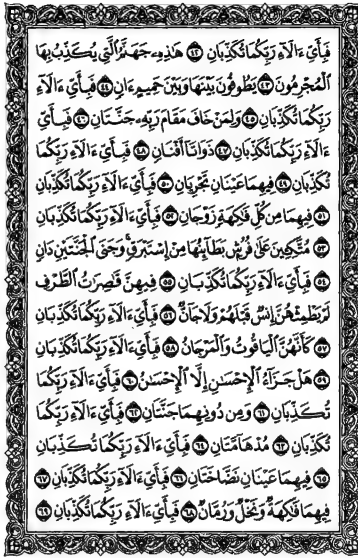 فَبِأَيِّ ءَالَآءِ رَبِّكُمَا تُكَذِّبَانِ ٤٢ هَٰذِهِۦ جَهَنَّمُ ٱلَّتِي يُكَذِّبُ بِهَا
ٱلۡمُجۡرِمُونَ ٤٣ يَطُوفُونَ بَيۡنَهَا وَبَيۡنَ حَمِيمٍ ءَانٖ ٤٤ فَبِأَيِّ ءَالَآءِ
رَبِّكُمَا تُكَذِّبَانِ ٤٥ وَلِمَنۡ خَافَ مَقَامَ رَبِّهِۦ جَنَّتَانِ ٤٦ فَبِأَيِّ
ءَالَآءِ رَبِّكُمَا تُكَذِّبَانِ ٤٧ ذَوَاتَآ أَفۡنَانٖ ٤٨ فَبِأَيِّ ءَالَآءِ رَبِّكُمَا
تُكَذِّبَانِ ٤٩ فِيهِمَا عَيۡنَانِ تَجۡرِيَانِ ٥٠ فَبِأَيِّ ءَالَآءِ رَبِّكُمَا تُكَذِّبَانِ
٥١ فِيهِمَا مِن كُلِّ فَٰكِهَةٖ زَوۡجَانِ ٥٢ فَبِأَيِّ ءَالَآءِ رَبِّكُمَا تُكَذِّبَانِ
٥٣ مُتَّكِـِٔينَ عَلَىٰ فُرُشِۭ بَطَآئِنُهَا مِنۡ إِسۡتَبۡرَقٖۚ وَجَنَى ٱلۡجَنَّتَيۡنِ دَانٖ
٥٤ فَبِأَيِّ ءَالَآءِ رَبِّكُمَا تُكَذِّبَانِ ٥٥ فِيهِنَّ قَٰصِرَٰتُ ٱلطَّرۡفِ
لَمۡ يَطۡمِثۡهُنَّ إِنسٞ قَبۡلَهُمۡ وَلَا جَآنّٞ ٥٦ فَبِأَيِّ ءَالَآءِ رَبِّكُمَا تُكَذِّبَانِ
٥٧ كَأَنَّهُنَّ ٱلۡيَاقُوتُ وَٱلۡمَرۡجَانُ ٥٨ فَبِأَيِّ ءَالَآءِ رَبِّكُمَا تُكَذِّبَانِ
٥٩ هَلۡ جَزَآءُ ٱلۡإِحۡسَٰنِ إِلَّا ٱلۡإِحۡسَٰنُ ٦٠ فَبِأَيِّ ءَالَآءِ رَبِّكُمَا
تُكَذِّبَانِ ٦١ وَمِن دُونِهِمَا جَنَّتَانِ ٦٢ فَبِأَيِّ ءَالَآءِ رَبِّكُمَا
تُكَذِّبَانِ ٦٣ مُدۡهَآمَّتَانِ ٦٤ فَبِأَيِّ ءَالَآءِ رَبِّكُمَا تُكَذِّبَانِ
٦٥ فِيهِمَا عَيۡنَانِ نَضَّاخَتَانِ ٦٦ فَبِأَيِّ ءَالَآءِ رَبِّكُمَا تُكَذِّبَانِ ٦٧
فِيهِمَا فَٰكِهَةٞ وَنَخۡلٞ وَرُمَّانٞ ٦٨ فَبِأَيِّ ءَالَآءِ رَبِّكُمَا تُكَذِّبَانِ ٦٩